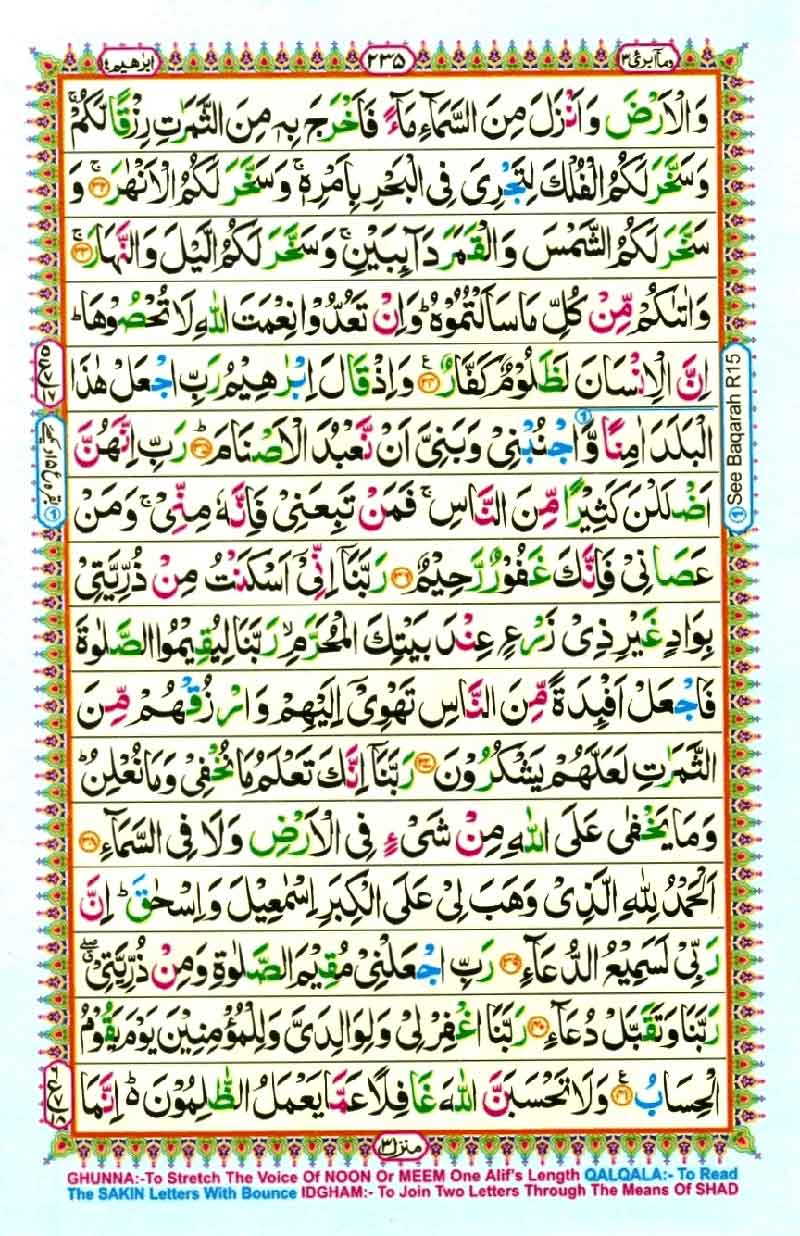 ابرٰهيم ١٤
٢٣٥
وما ابرئ ١٣
وَالْاَرْضَ وَاَنْزَلَ مِنَ السَّمَآءِ مَآءً فَاَخْرَجَ بِهٖ مِنَ الثَّمَرٰتِ رِزْقًا لَّكُمْ ۚ
وَسَخَّرَ لَكُمُ الْفُلْكَ لِتَجْرِىَ فِى الْبَحْرِ بِاَمْرِهٖ ۚ وَسَخَّرَ لَكُمُ الْاَنْهٰرَ ۚ ﴿٣٢﴾ وَ
سَخَّرَ لَكُمُ الشَّمْسَ وَالْقَمَرَ دَآئِبَيْنِ ۚ وَسَخَّرَ لَكُمُ الَّيْلَ وَالنَّهَارَ ۚ ﴿٣٣﴾
وَاٰتٰىكُمْ مِّنْ كُلِّ مَا سَاَلْتُمُوْهُ ؕ وَاِنْ تَعُدُّوْا نِعْمَتَ اللّٰهِ لَا تُحْصُوْهَا ؕ
اِنَّ الْاِنْسَانَ لَظَلُوْمٌ كَفَّارٌ ﴿٣٤﴾ وَاِذْ قَالَ اِبْرٰهِيْمُ رَبِّ اجْعَلْ هٰذَا
الْبَلَدَ اٰمِنًا وَّاجْنُبْنِىْ وَبَنِىَّ اَنْ نَّعْبُدَ الْاَصْنَامَ ؕ ﴿٣٥﴾ رَبِّ اِنَّهُنَّ
اَضْلَلْنَ كَثِيْرًا مِّنَ النَّاسِ ۚ فَمَنْ تَبِعَنِىْ فَاِنَّهٗ مِنِّىْ ۚ وَمَنْ
عَصَانِىْ فَاِنَّكَ غَفُوْرٌ رَّحِيْمٌ ﴿٣٦﴾ رَبَّنَاۤ اِنِّىْۤ اَسْكَنْتُ مِنْ ذُرِّيَّتِىْ
بِوَادٍ غَيْرِ ذِىْ زَرْعٍ عِنْدَ بَيْتِكَ الْمُحَرَّمِ ۙ رَبَّنَا لِيُقِيْمُوا الصَّلٰوةَ
فَاجْعَلْ اَفْئِدَةً مِّنَ النَّاسِ تَهْوِىْۤ اِلَيْهِمْ وَارْزُقْهُمْ مِّنَ
الثَّمَرٰتِ لَعَلَّهُمْ يَشْكُرُوْنَ ﴿٣٧﴾ رَبَّنَاۤ اِنَّكَ تَعْلَمُ مَا نُخْفِىْ وَمَا نُعْلِنُ ؕ
وَمَا يَخْفٰى عَلَى اللّٰهِ مِنْ شَىْءٍ فِى الْاَرْضِ وَلَا فِى السَّمَآءِ ﴿٣٨﴾
اَلْحَمْدُ لِلّٰهِ الَّذِىْ وَهَبَ لِىْ عَلَى الْكِبَرِ اِسْمٰعِيْلَ وَاِسْحٰقَ ؕ اِنَّ
رَبِّىْ لَسَمِيْعُ الدُّعَآءِ ﴿٣٩﴾ رَبِّ اجْعَلْنِىْ مُقِيْمَ الصَّلٰوةِ وَمِنْ ذُرِّيَّتِىْ ۖ
رَبَّنَا وَتَقَبَّلْ دُعَآءِ ﴿٤٠﴾ رَبَّنَا اغْفِرْ لِىْ وَلِوَالِدَىَّ وَلِلْمُؤْمِنِيْنَ يَوْمَ يَقُوْمُ
الْحِسَابُ ﴿٤١﴾ وَلَا تَحْسَبَنَّ اللّٰهَ غَافِلًا عَمَّا يَعْمَلُ الظّٰلِمُوْنَ ؕ اِنَّمَا
① See Baqarah R15
منزل ٣
GHUNNA:-To Stretch The Voice Of NOON Or MEEM One Alif's Length QALQALA:- To Read
The SAKIN Letters With Bounce IDGHAM:- To Join Two Letters Through The Means Of SHAD